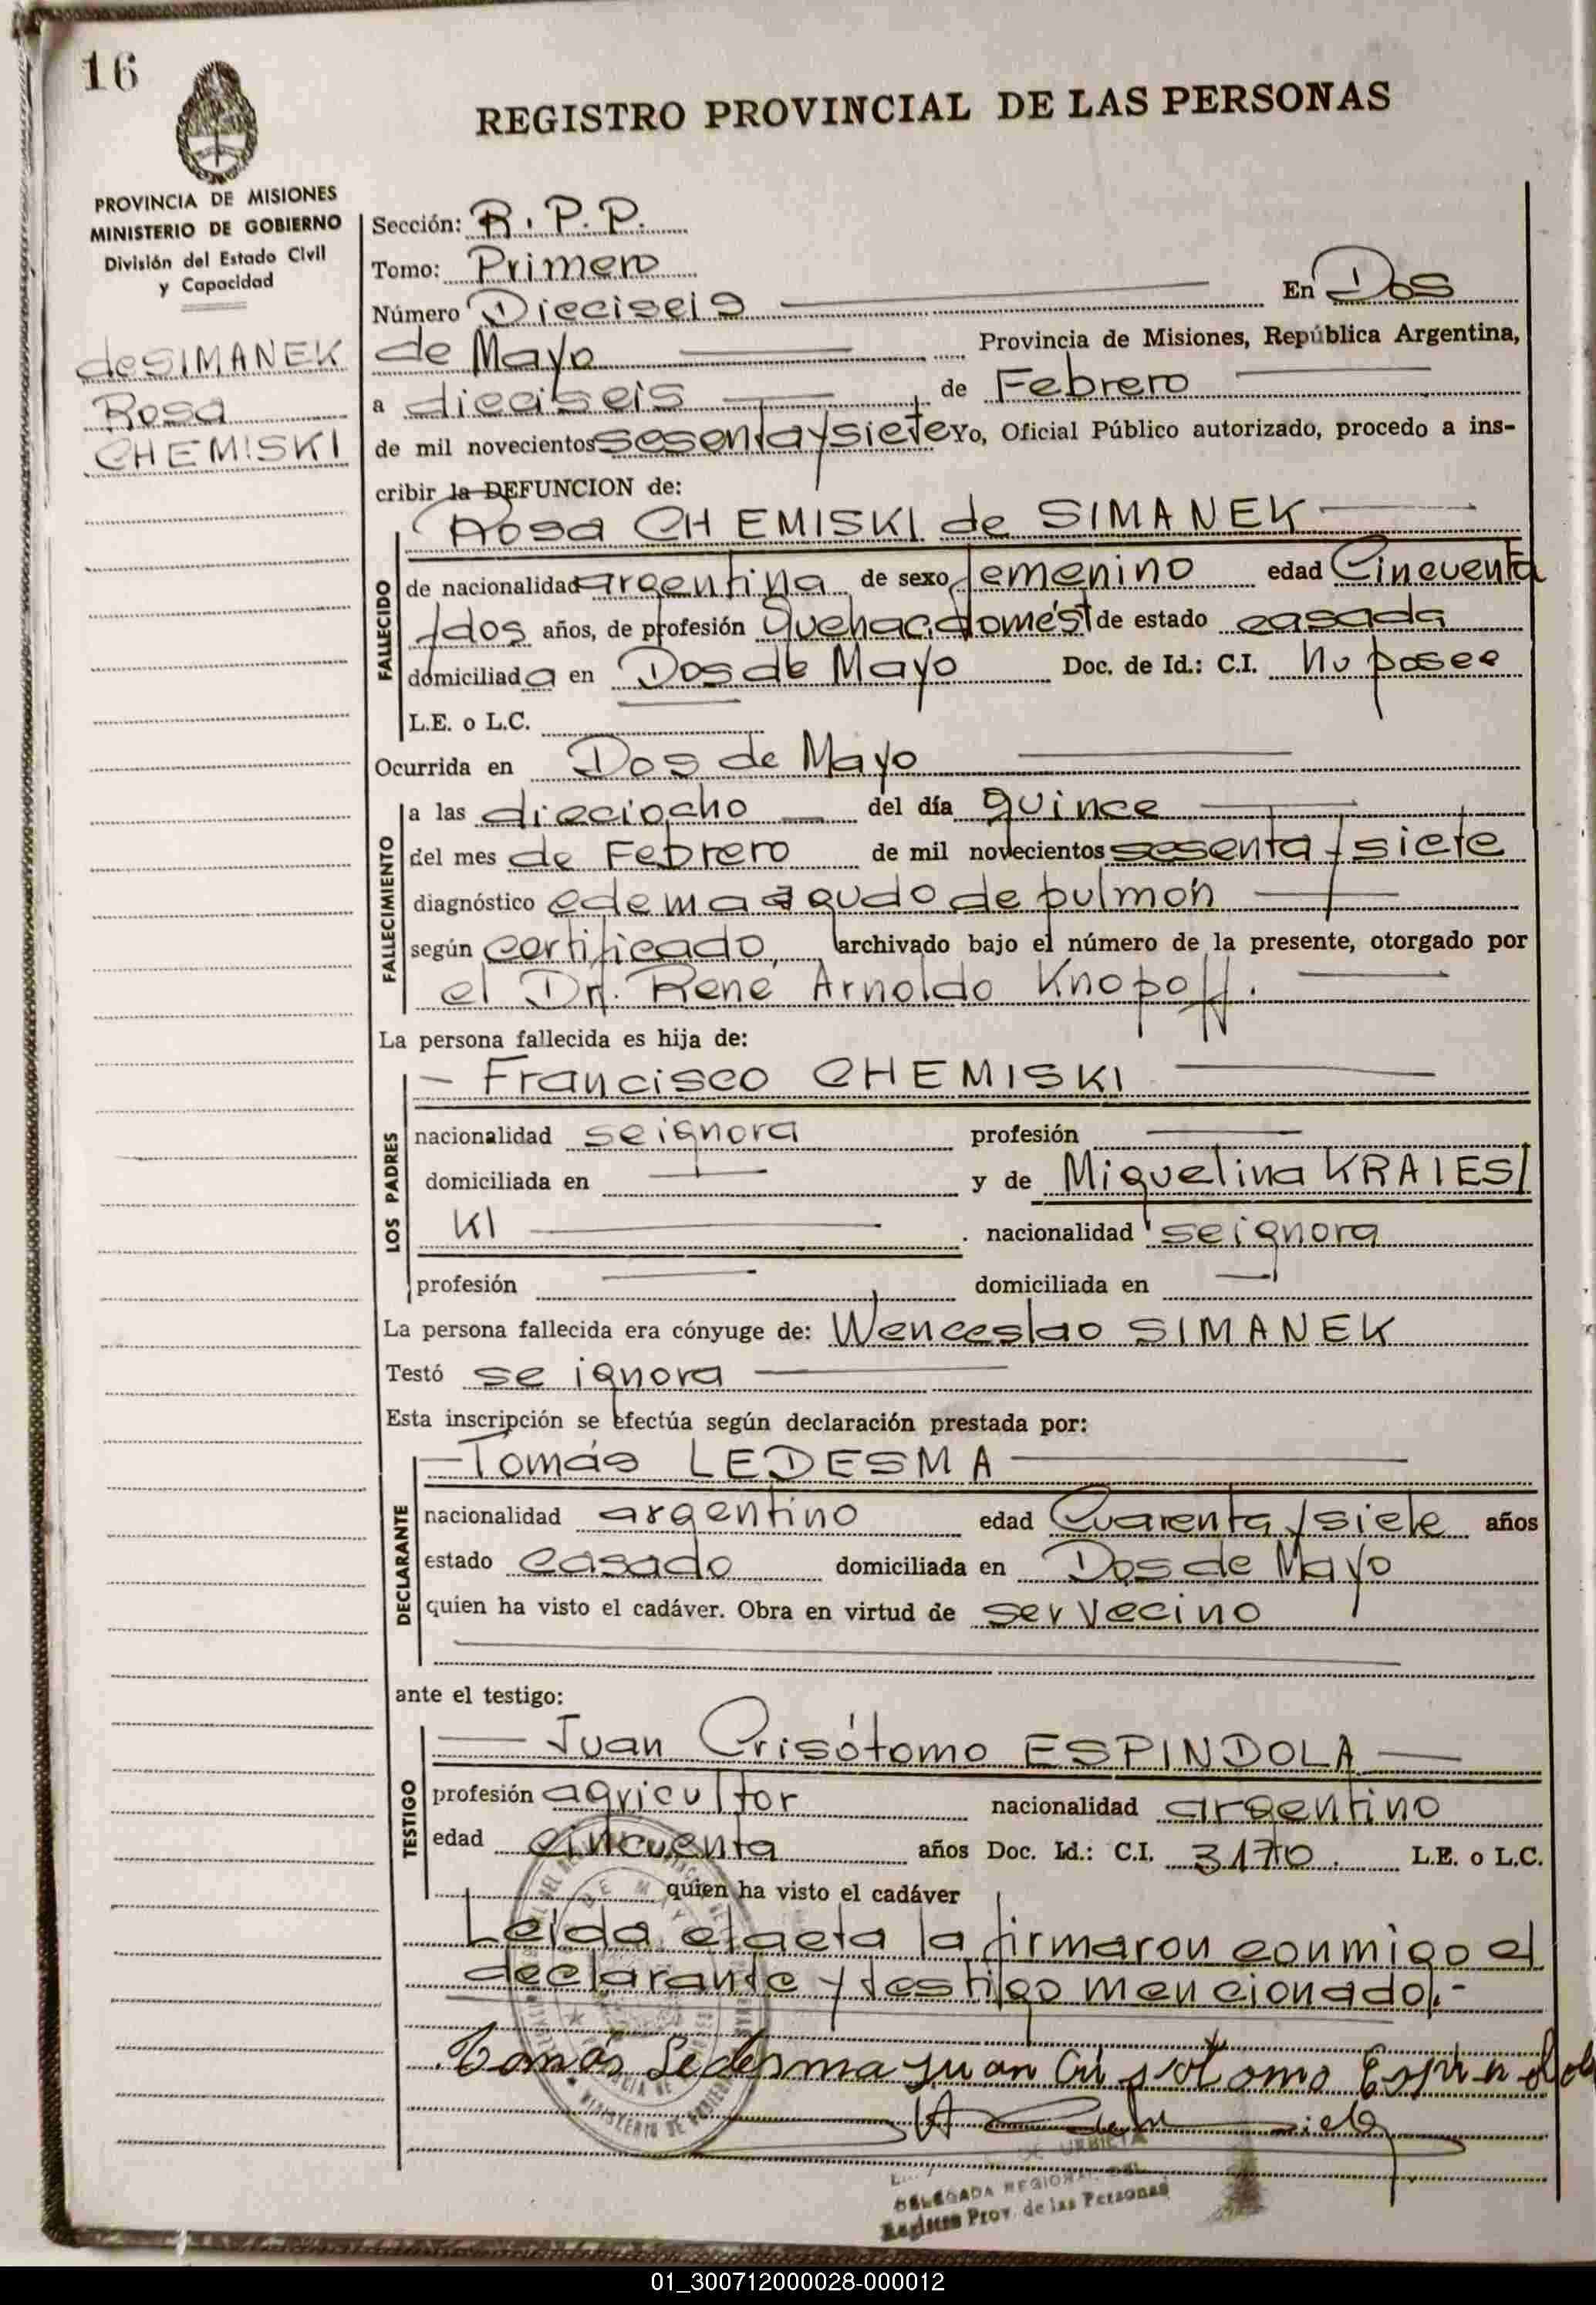 16
REGISTRO PROVINCIAL DE LAS PERSONAS
PROVINCIA DE MISIONES
MINISTERIO DE GOBIERNO
División del Estado Civil
y Capacidad
de SIMANEK
Rosa
CHEMISKI
Sección: R.P.P.
Tomo: Primero
Número Dieciseis En Dos
de Mayo Provincia de Misiones, República Argentina,
a dieciseis de Febrero
de mil novecientos sesenta y siete Yo, Oficial Público autorizado, procedo a ins-
cribir la DEFUNCION de:
Rosa CHEMISKI de SIMANEK
FALLECIDO
de nacionalidad argentina de sexo femenino edad Cincuenta
y dos años, de profesión Quehac. domést de estado casada
domiciliada en Dos de Mayo Doc. de Id.: C.I. No posee
L.E. o L.C.
Ocurrida en Dos de Mayo
FALLECIMIENTO
a las dieciocho del día quince
del mes de Febrero de mil novecientos sesenta y siete
diagnóstico edema agudo de pulmón
según certificado, archivado bajo el número de la presente, otorgado por
el Dr. René Arnoldo Knopoff.
La persona fallecida es hija de:
LOS PADRES
- Francisco CHEMISKI
nacionalidad se ignora profesión
domiciliada en y de Miguelina KRAIES
KI . nacionalidad se ignora
profesión domiciliada en
La persona fallecida era cónyuge de: Wenceslao SIMANEK
Testó se ignora
Esta inscripción se efectúa según declaración prestada por:
DECLARANTE
Tomás LEDESMA
nacionalidad argentino edad Cuarenta y siete años
estado Casado domiciliada en Dos de Mayo
quien ha visto el cadáver. Obra en virtud de ser vecino
ante el testigo:
TESTIGO
Juan Crisótomo ESPINDOLA
profesión agricultor nacionalidad argentino
edad cincuenta años Doc. Id.: C.I. 3170. L.E. o L.C.
quien ha visto el cadáver
Leída el acta la firmaron conmigo el
declarante y testigo mencionado.-
Tomás Ledesma Juan Crisótomo Espindola
DE URBIETA
DELEGADA REGIONAL DEL
Registro Prov. de las Personas
01_300712000028-000012